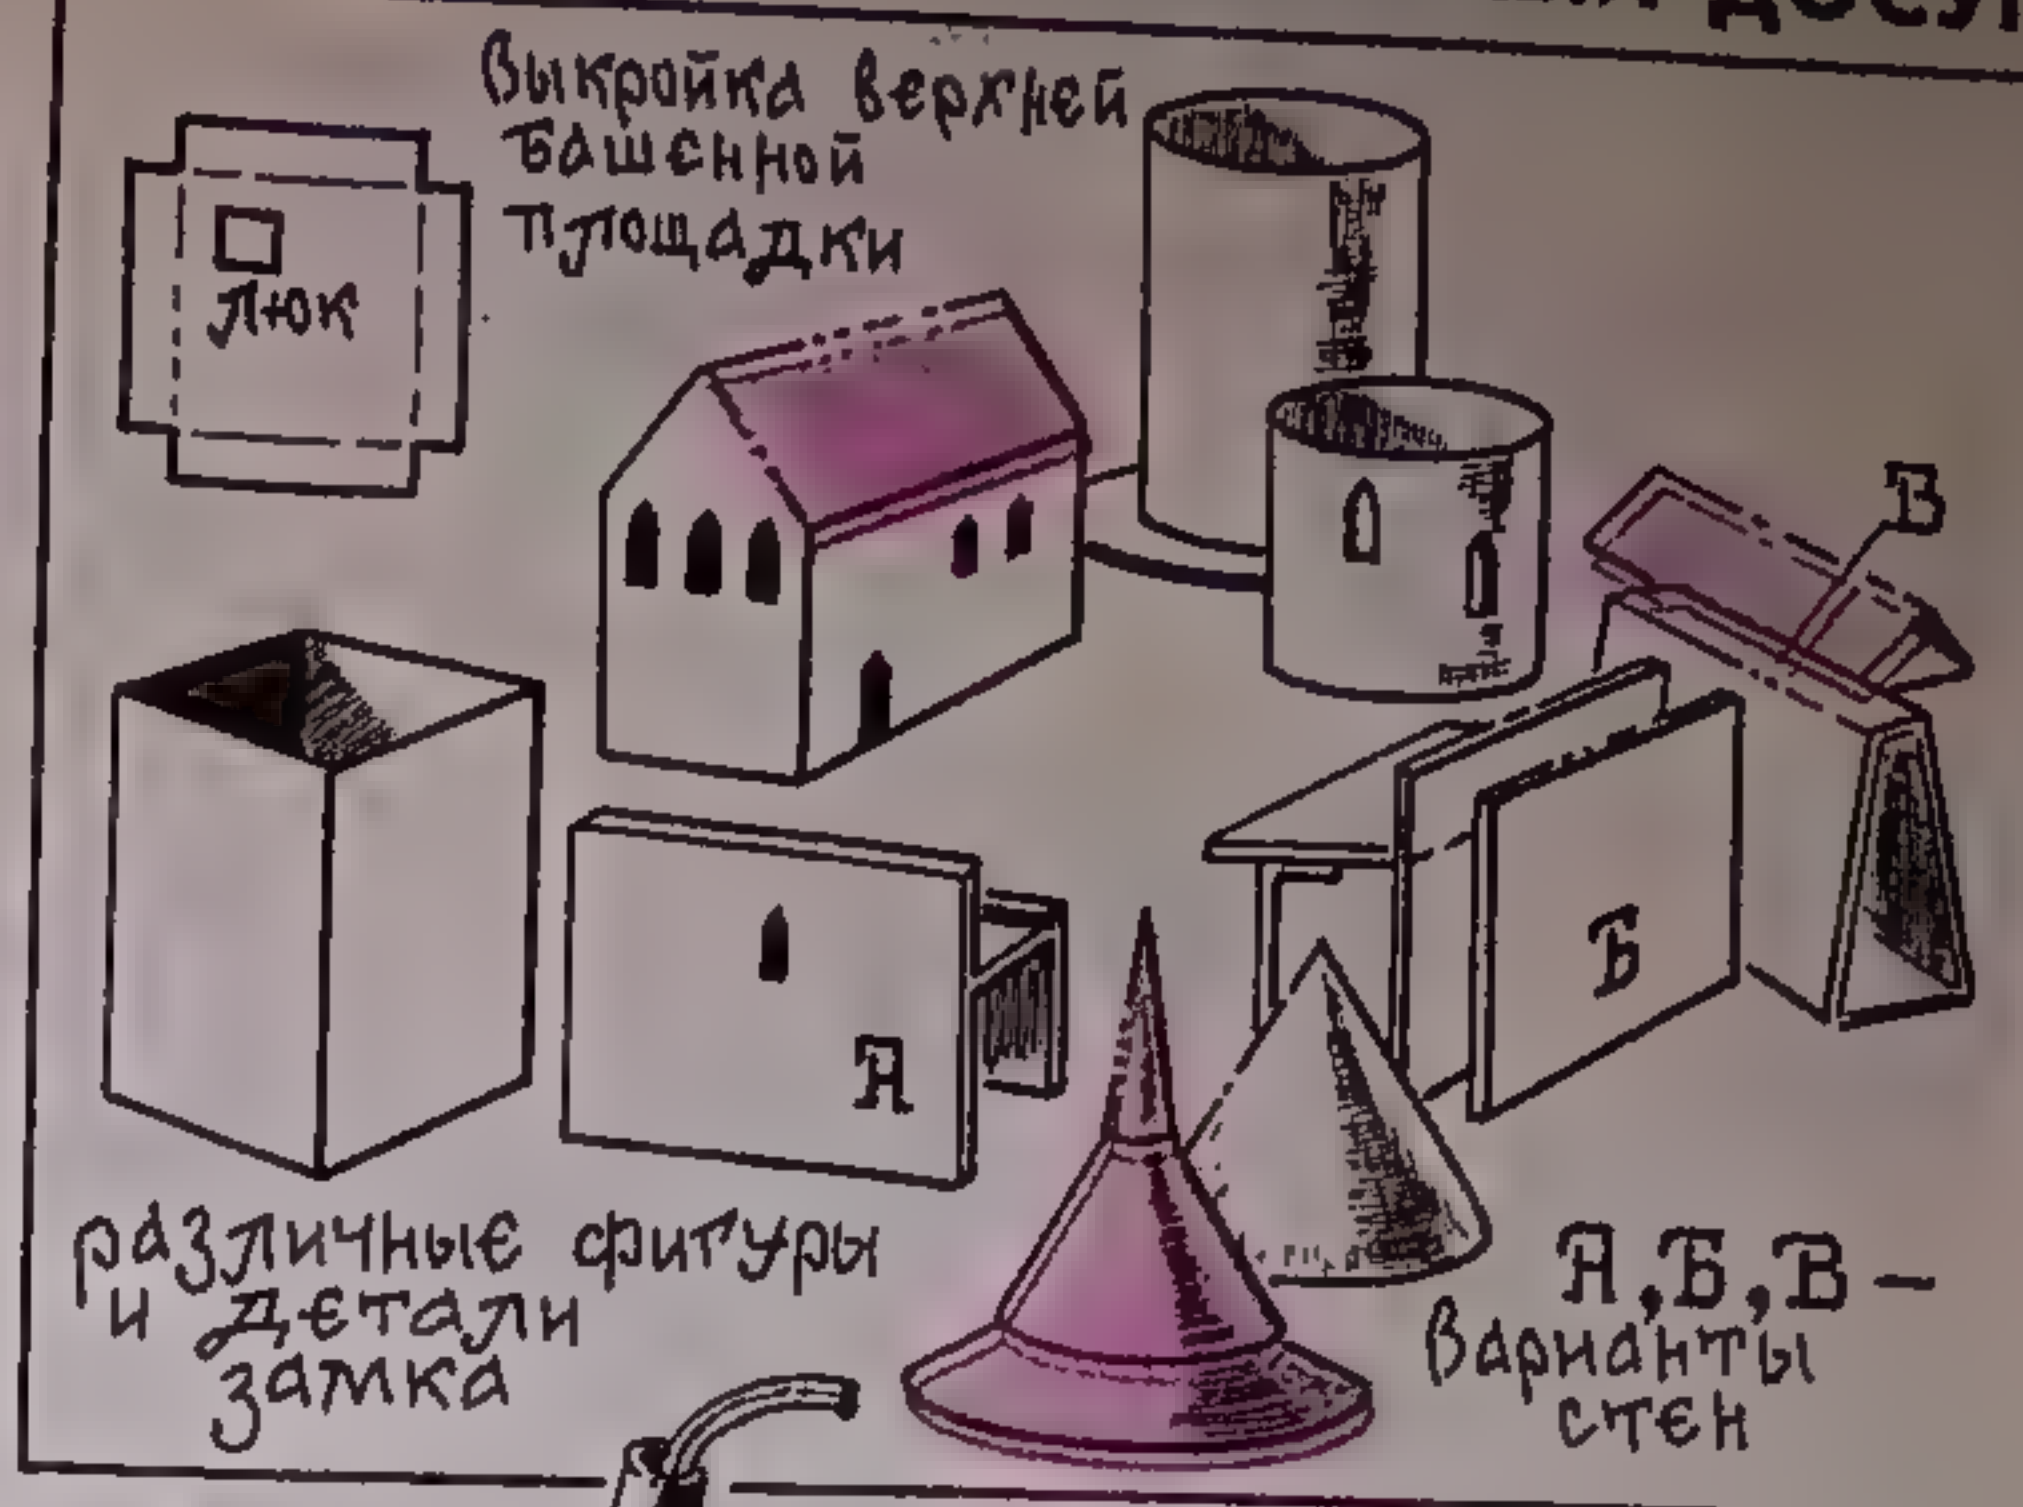 Выкройка верхней
башенной
площадки
люк
В
Б
А
различные фигуры
и детали
замка
А, Б, В —
варианты
стен